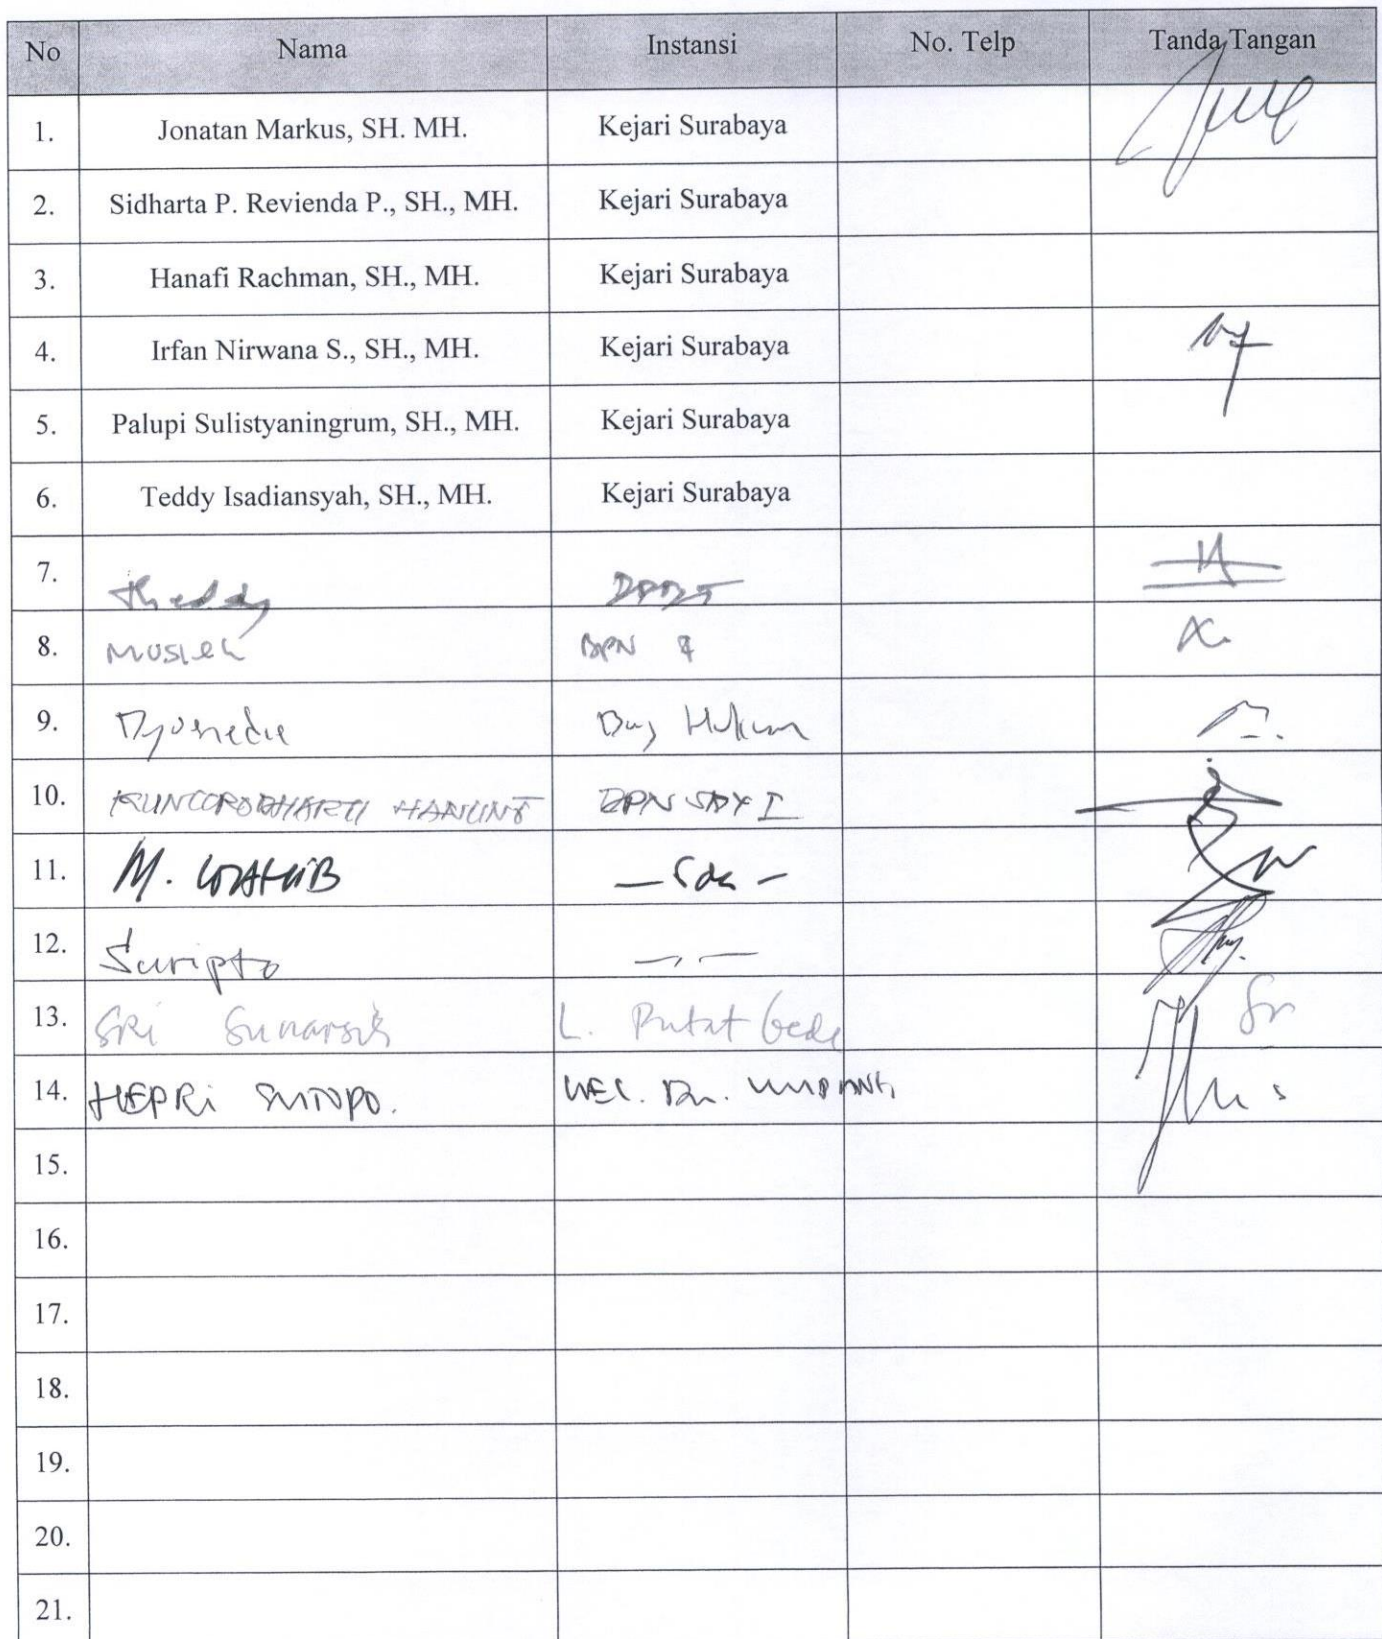 No Nama Instansi No. Telp Tanda Tangan
1. Jonatan Markus, SH. MH. Kejari Surabaya
2. Sidharta P. Revienda P., SH., MH. Kejari Surabaya
3. Hanafi Rachman, SH., MH. Kejari Surabaya
4. Irfan Nirwana S., SH., MH. Kejari Surabaya
5. Palupi Sulistyaningrum, SH., MH. Kejari Surabaya
6. Teddy Isadiansyah, SH., MH. Kejari Surabaya
7. Theddy
8. BPN
9. Hukum
10. BPN SBY I
11. M. WAHIB - Sda -
12. Suripto
13. SRI Sunarsih L. Putat Gede
14. HEPRi SUTOPO.
15.
16.
17.
18.
19.
20.
21.